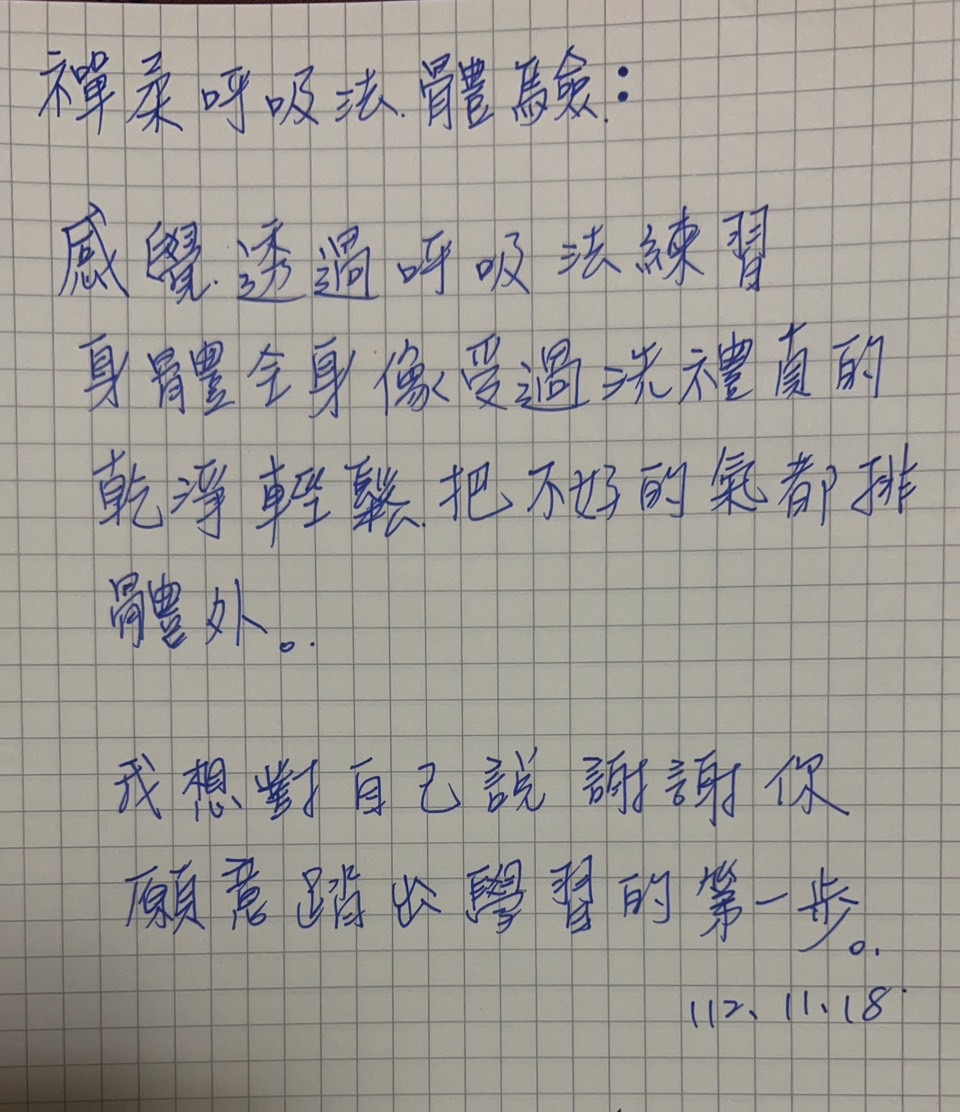 禪柔呼吸法體驗：
感覺透過呼吸法練習
身體全身像受過洗禮真的
乾淨輕鬆把不好的氣都排
體外。
我想對自己說謝謝你
願意踏出學習的第一步。
112、11、18